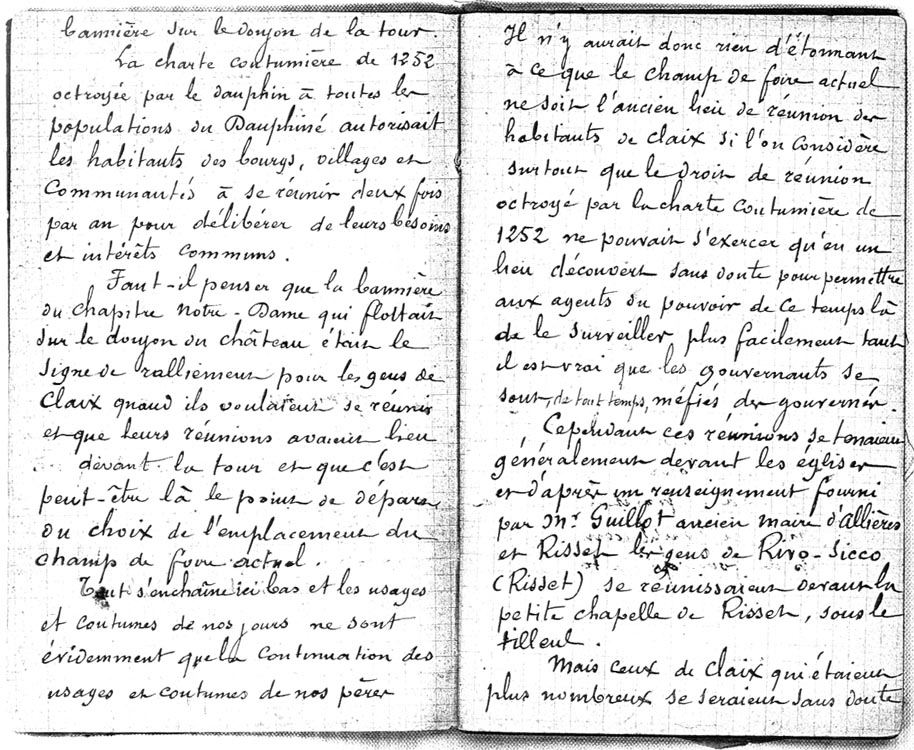 bannière sur le donjon de la tour.
La charte coutumière de 1252
octroyée par le dauphin à toutes les
populations du Dauphiné autorisait
les habitants des bourgs, villages et
Communautés à se réunir deux fois
par an pour délibérer de leurs besoins
et intérêts communs.
Faut-il penser que la bannière
du chapitre Notre-Dame qui flottait
sur le donjon du château était le
signe de ralliement pour les gens de
Claix quand ils voulaient se réunir
et que leurs réunions avaient lieu
devant la tour et que c'est
peut-être là le point de départ
du choix de l'emplacement du
champ de foire actuel.
Tout s'enchaîne ici bas et les usages
et coutumes de nos jours ne sont
évidemment que la continuation des
usages et coutumes de nos pères
Il n'y aurait donc rien d'étonnant
à ce que le champ de foire actuel
ne soit l'ancien lieu de réunion des
habitants de Claix si l'on considère
surtout que le droit de réunion
octroyé par la charte coutumière de
1252 ne pouvait s'exercer qu'en un
lieu découvert sans doute pour permettre
aux agents du pouvoir de ce temps là
de le surveiller plus facilement tant
il est vrai que les gouvernants se
sont, de tout temps, méfiés des gouvernés.
Cependant ces réunions se tenaient
généralement devant les églises
et d'après un renseignement fourni
par Mr Guillot ancien maire d'Allières
et Risset les gens de Rivo-Sicco
(Risset) se réunissaient devant la
petite chapelle de Risset, sous le
tilleul.
Mais ceux de Claix qui étaient
plus nombreux se seraient sans doute